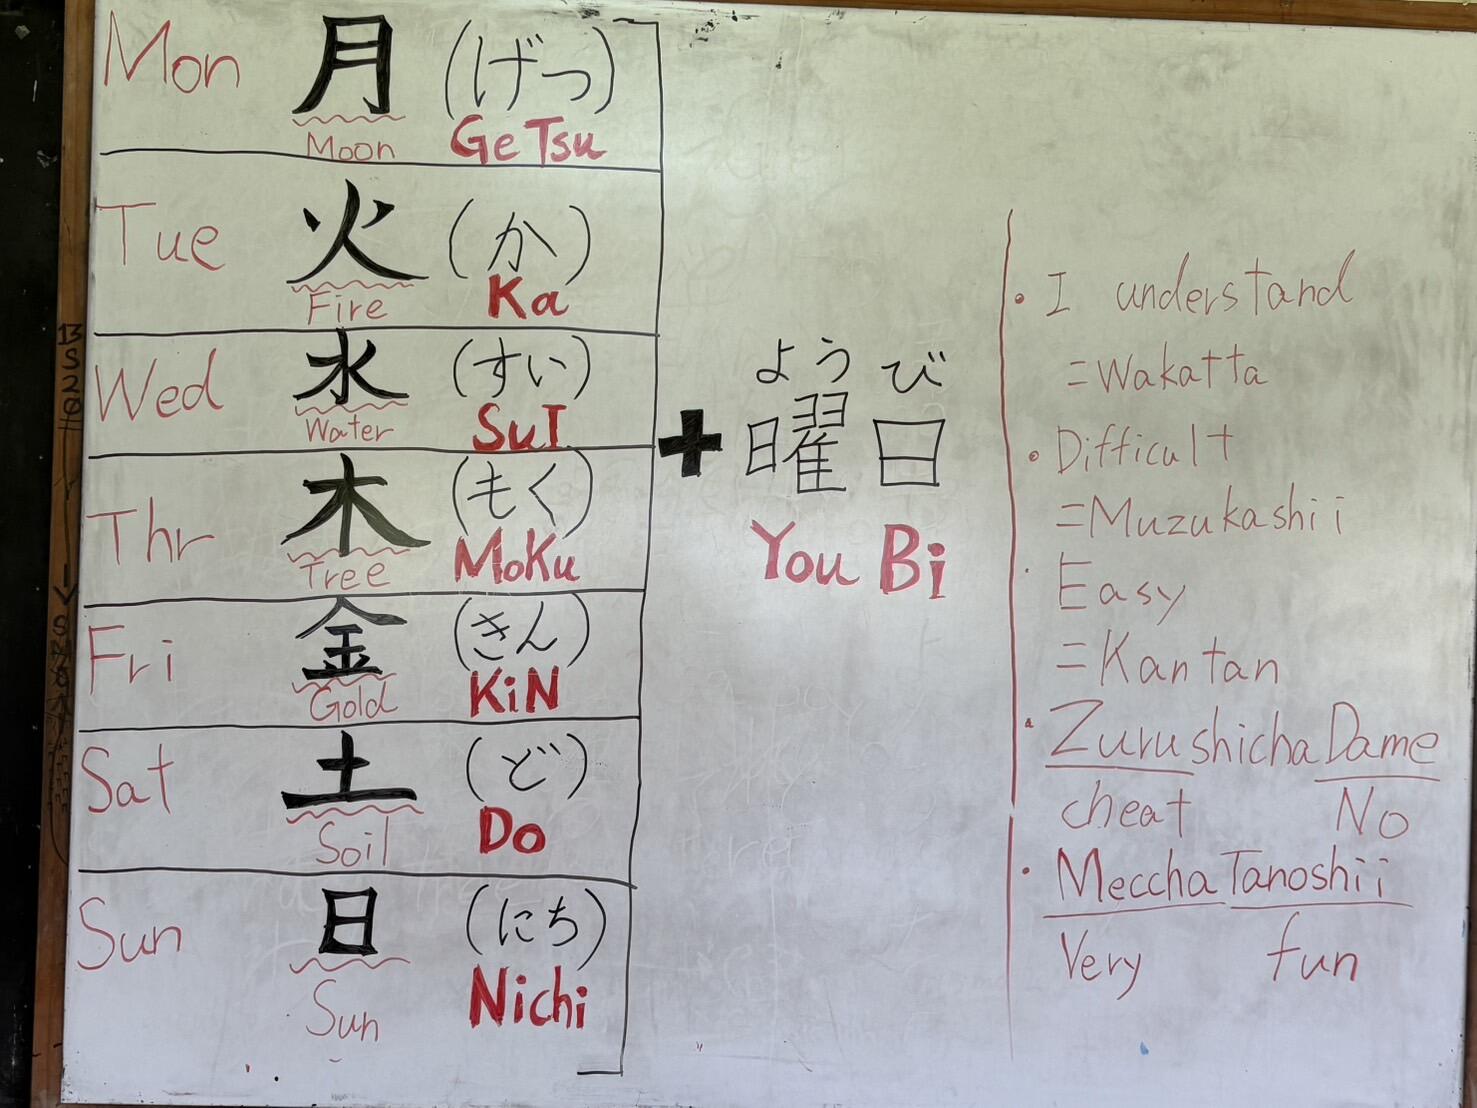 Mon 月 (げつ)
Moon GeTsu
Tue 火 (か)
Fire Ka
Wed 水 (すい)
Water SuI
Thr 木 (もく)
Tree MoKu
Fri 金 (きん)
Gold KiN
Sat 土 (ど)
Soil Do
Sun 日 (にち)
Sun Nichi
よう び
+ 曜 日
You Bi
・I understand
=Wakatta
・Difficult
=Muzukashii
・Easy
=Kantan
・Zurushicha Dame
cheat No
・Meccha Tanoshii
Very fun